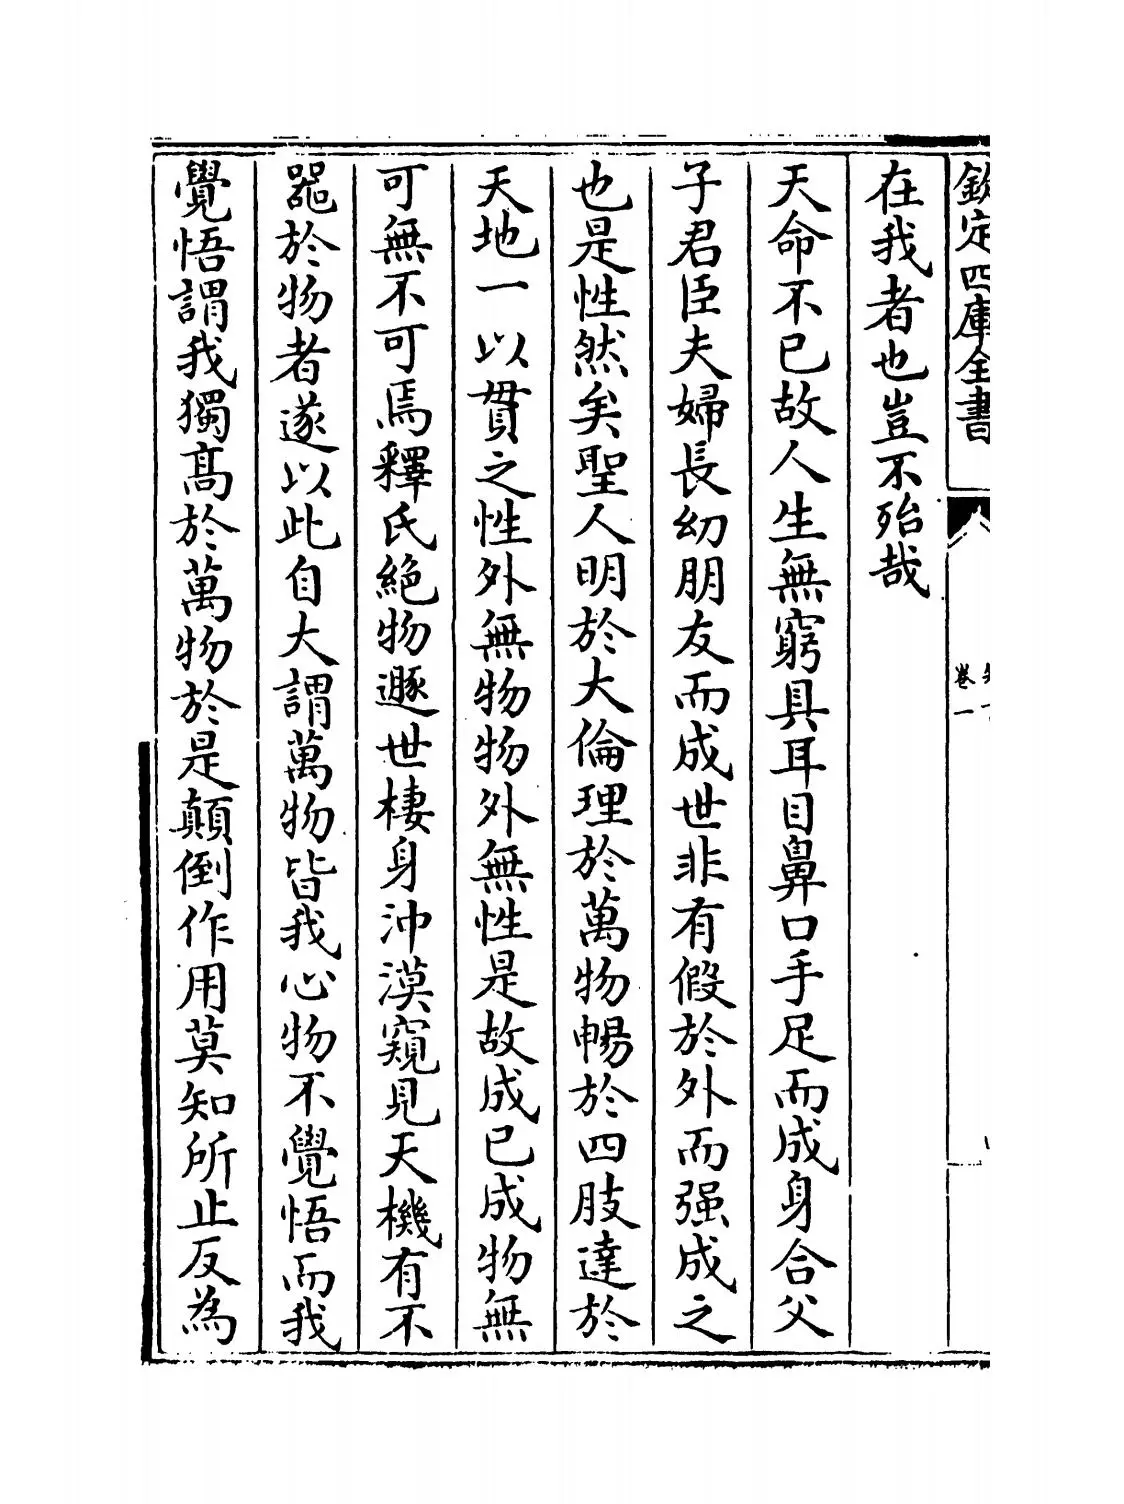 欽定四庫全書
卷一
在我者也豈不殆哉
天命不已故人生無窮具耳目鼻口手足而成身合父
子君臣夫婦長幼朋友而成世非有假於外而强成之
也是性然矣聖人明於大倫理於萬物暢於四肢達於
天地一以貫之性外無物物外無性是故成已成物無
可無不可焉釋氏絶物遯世棲身沖漠窺見天機有不
器於物者遂以此自大謂萬物皆我心物不覺悟而我
覺悟謂我獨髙於萬物於是顛倒作用莫知所止反為